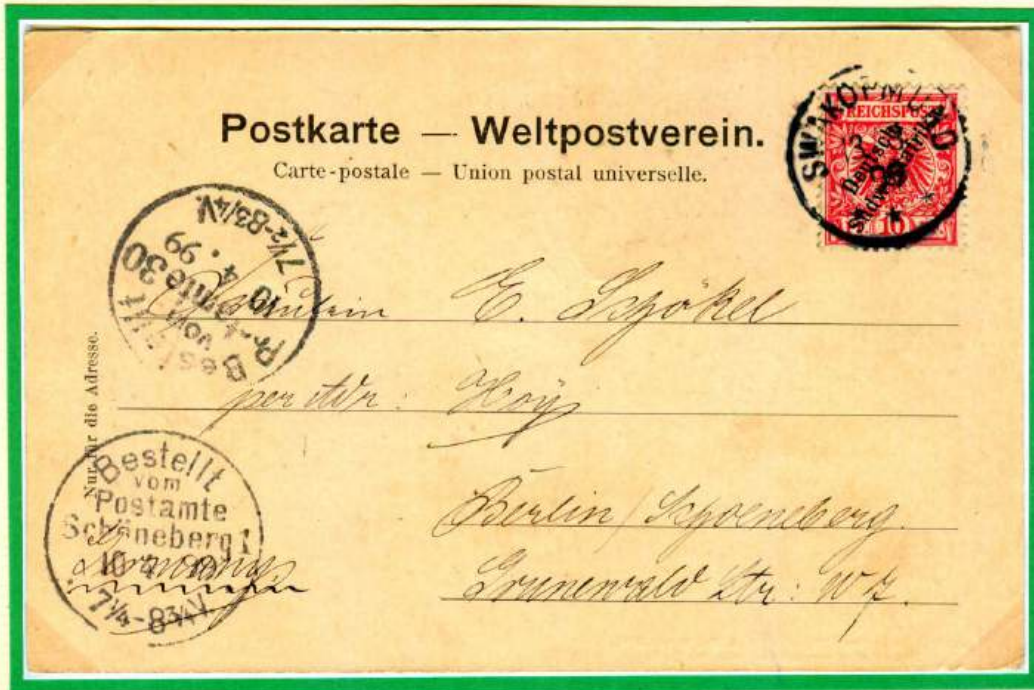 Postkarte — Weltpostverein.
Carte-postale — Union postal universelle.
SWAKOPMUND
REICHSPOST
Deutsch-
Südwest-Afrika
10
Bestellt
vom
Postamte 30
10 4. 99
7½-8¾V.
Fräulein E. Schökel
per Adr: Hoÿ
Berlin/Schoeneberg.
Grunewald Str:
Nur für die Adresse.
Bestellt
vom
Postamte
Schöneberg 1
10 4 99
7¼-8¾V